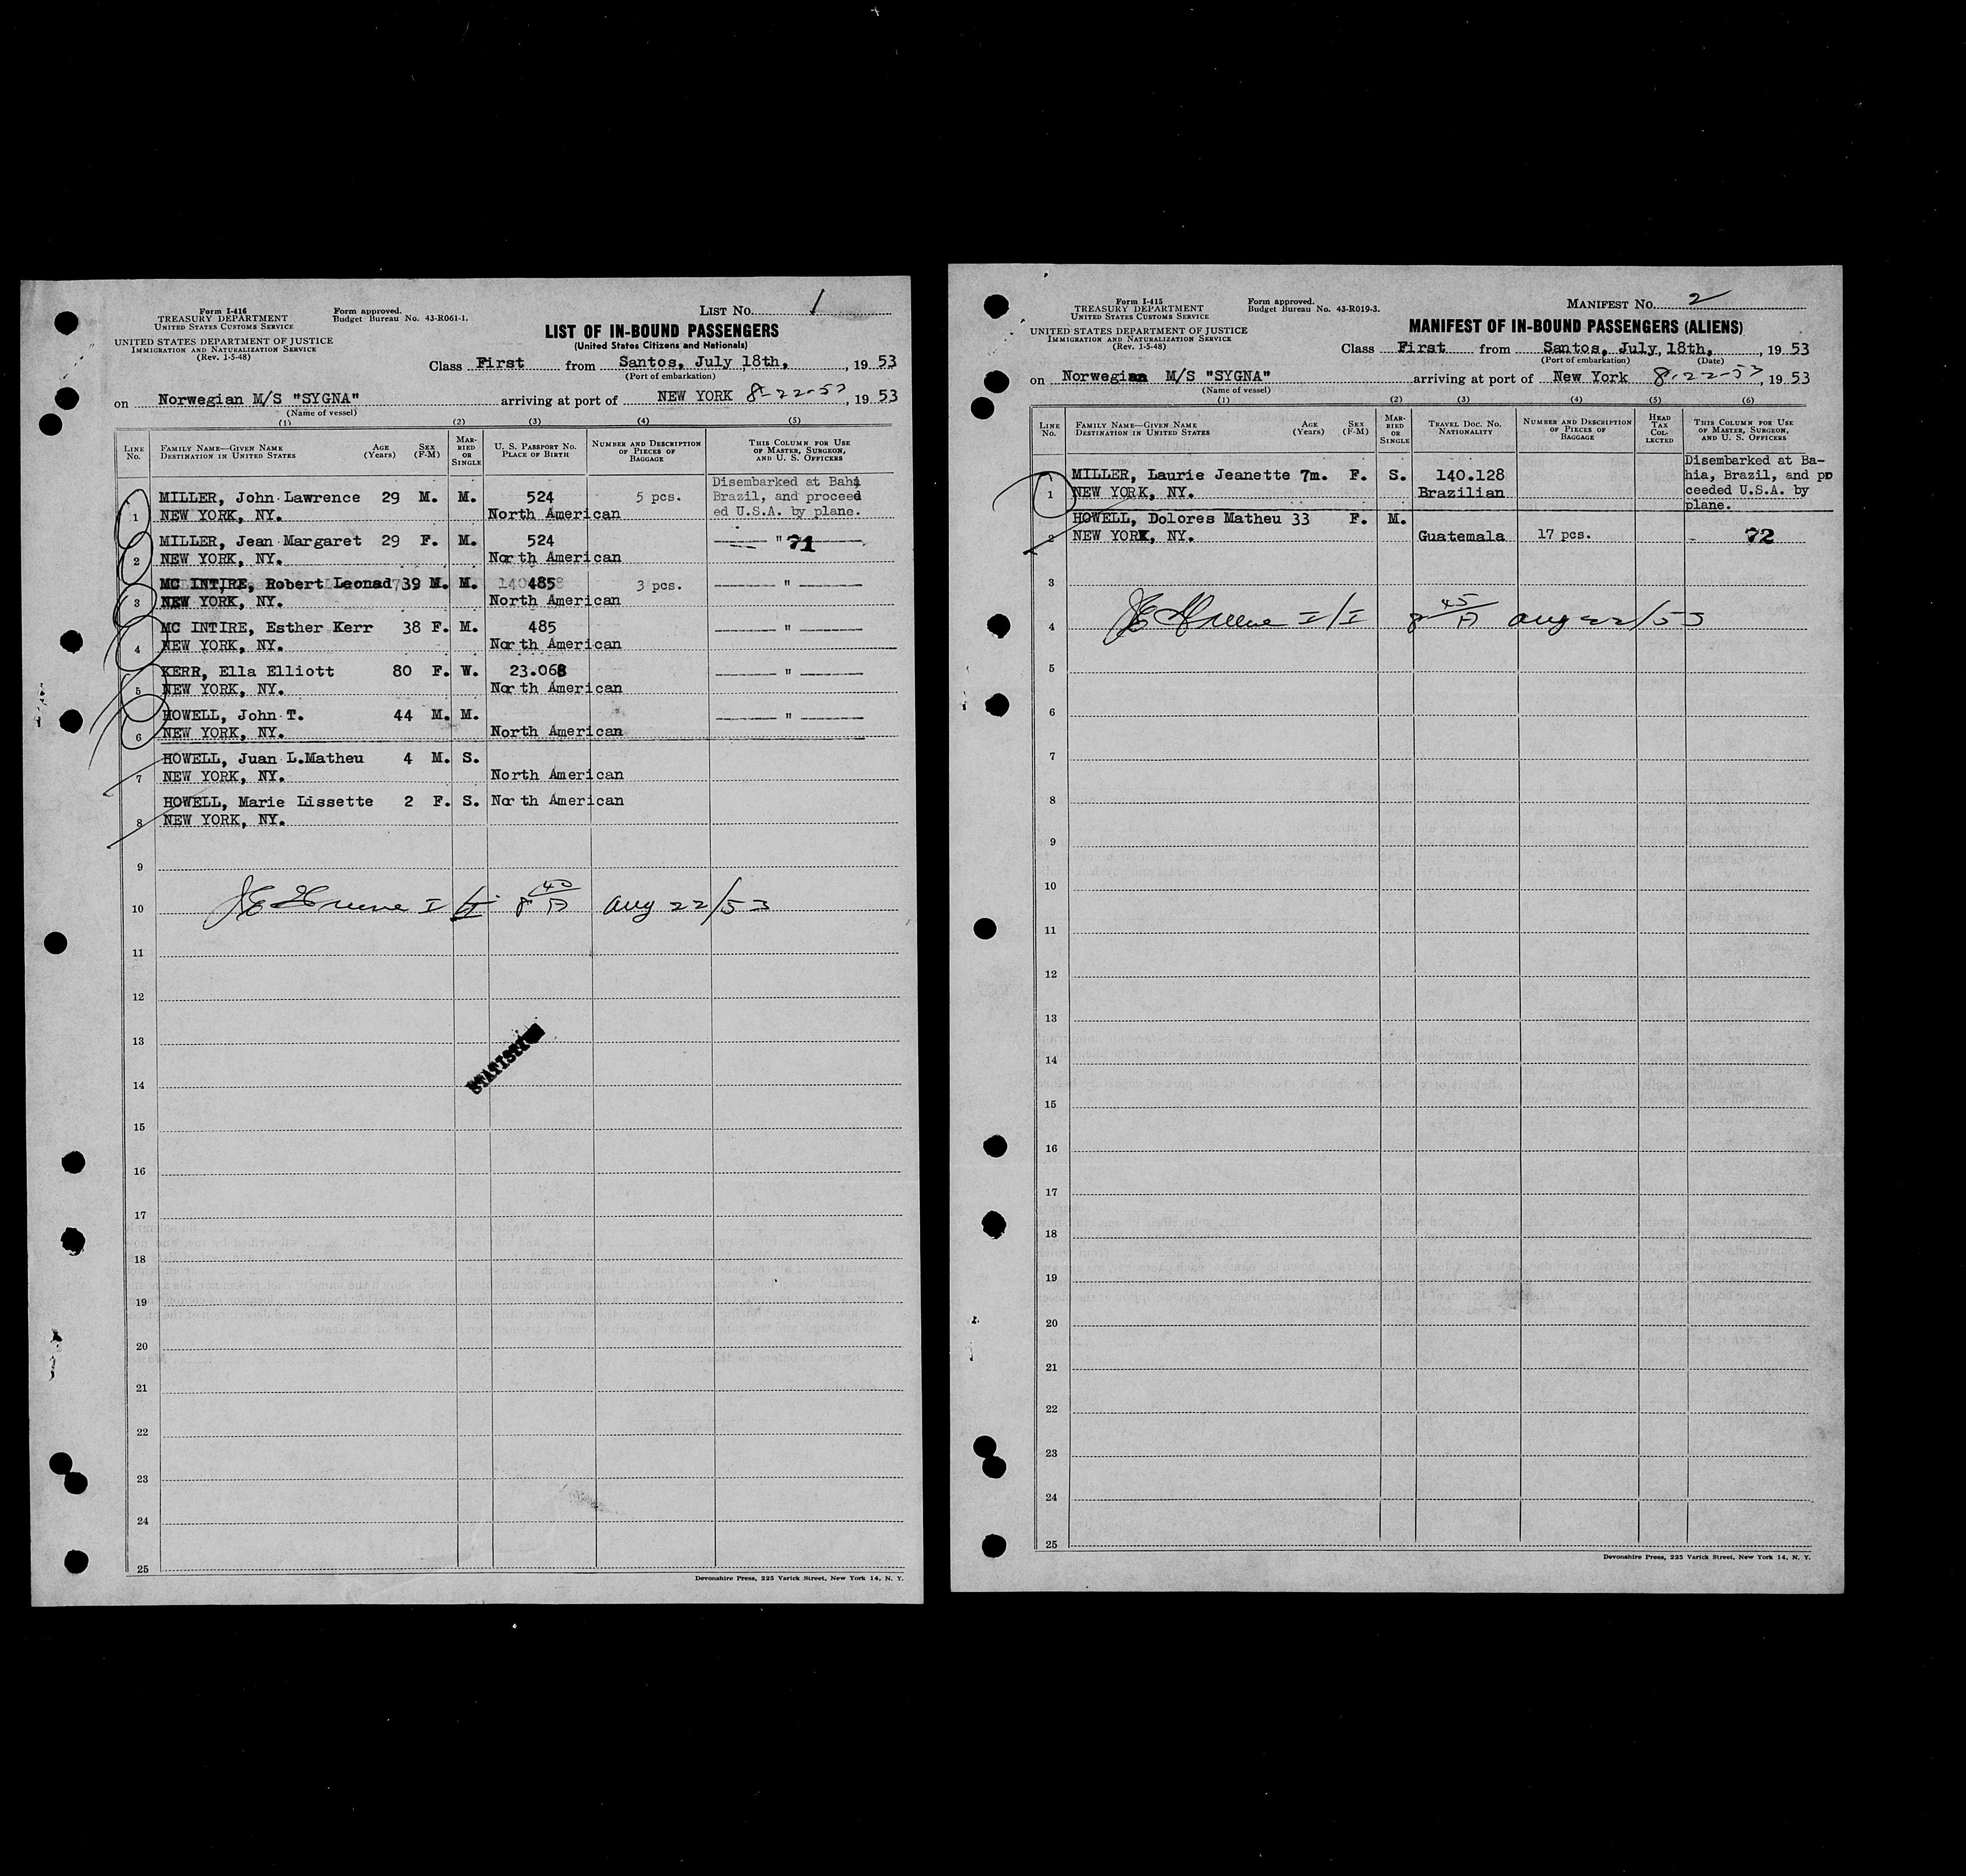 Form I-416
TREASURY DEPARTMENT
UNITED STATES CUSTOMS SERVICE
UNITED STATES DEPARTMENT OF JUSTICE
IMMIGRATION AND NATURALIZATION SERVICE
(Rev. 1-5-48)
Form approved.
Budget Bureau No. 43-R061-1.
LIST NO. 1
LIST OF IN-BOUND PASSENGERS
(United States Citizens and Nationals)
Class First from Santos, July 18th, , 19 53
(Port of embarkation)
on Norwegian M/S "SYGNA" arriving at port of NEW YORK 8-22-53, 19 53
(Name of vessel)
(1) (2) (3) (4) (5)
LINE NO. FAMILY NAME—GIVEN NAME DESTINATION IN UNITED STATES AGE (Years) SEX (F-M) MARRIED OR SINGLE U. S. PASSPORT NO. PLACE OF BIRTH NUMBER AND DESCRIPTION OF PIECES OF BAGGAGE THIS COLUMN FOR USE OF MASTER, SURGEON, AND U. S. OFFICERS
Disembarked at Bahi
MILLER, John Lawrence 29 M. M. 524 5 pcs. Brazil, and proceed
1 NEW YORK, NY. North American ed U.S.A. by plane.
MILLER, Jean Margaret 29 F. M. 524 " 71
2 NEW YORK, NY. North American
MC INTIRE, Robert Leonad 39 M. M. 485 3 pcs. "
3 NEW YORK, NY. North American
MC INTIRE, Esther Kerr 38 F. M. 485 "
4 NEW YORK, NY. North American
KERR, Ella Elliott 80 F. W. 23.068 "
5 NEW YORK, NY. North American
HOWELL, John T. 44 M. M. "
6 NEW YORK, NY. North American
HOWELL, Juan L.Matheu 4 M. S.
7 NEW YORK, NY. North American
HOWELL, Marie Lissette 2 F. S. North American
8 NEW YORK, NY.
9
10 I/I 8 40 A Aug 22/53
11
12
13
14
15
16
17
18
19
20
21
22
23
24
25
Devonshire Press, 225 Varick Street, New York 14, N. Y.
Form I-415
TREASURY DEPARTMENT
UNITED STATES CUSTOMS SERVICE
UNITED STATES DEPARTMENT OF JUSTICE
IMMIGRATION AND NATURALIZATION SERVICE
(Rev. 1-5-48)
Form approved.
Budget Bureau No. 43-R019-3.
MANIFEST NO. 2
MANIFEST OF IN-BOUND PASSENGERS (ALIENS)
Class First from Santos, July, 18th, , 19 53
(Port of embarkation) (Date)
on Norwegian M/S "SYGNA" arriving at port of New York 8-22-53, 19 53
(Name of vessel)
(1) (2) (3) (4) (5) (6)
LINE NO. FAMILY NAME—GIVEN NAME DESTINATION IN UNITED STATES AGE (Years) SEX (F-M) MARRIED OR SINGLE TRAVEL DOC. NO. NATIONALITY NUMBER AND DESCRIPTION OF PIECES OF BAGGAGE HEAD TAX COLLECTED THIS COLUMN FOR USE OF MASTER, SURGEON, AND U. S. OFFICERS
Disembarked at Ba-
MILLER, Laurie Jeanette 7m. F. S. 140.128 hia, Brazil, and pro
1 NEW YORK, NY. Brazilian ceeded U.S.A. by
plane.
HOWELL, Dolores Matheu 33 F. M.
2 NEW YORK, NY. Guatemala 17 pcs. 72
3
4 I/I 8 45 A Aug 22/53
5
6
7
8
9
10
11
12
13
14
15
16
17
18
19
20
21
22
23
24
25
Devonshire Press, 225 Varick Street, New York 14, N. Y.